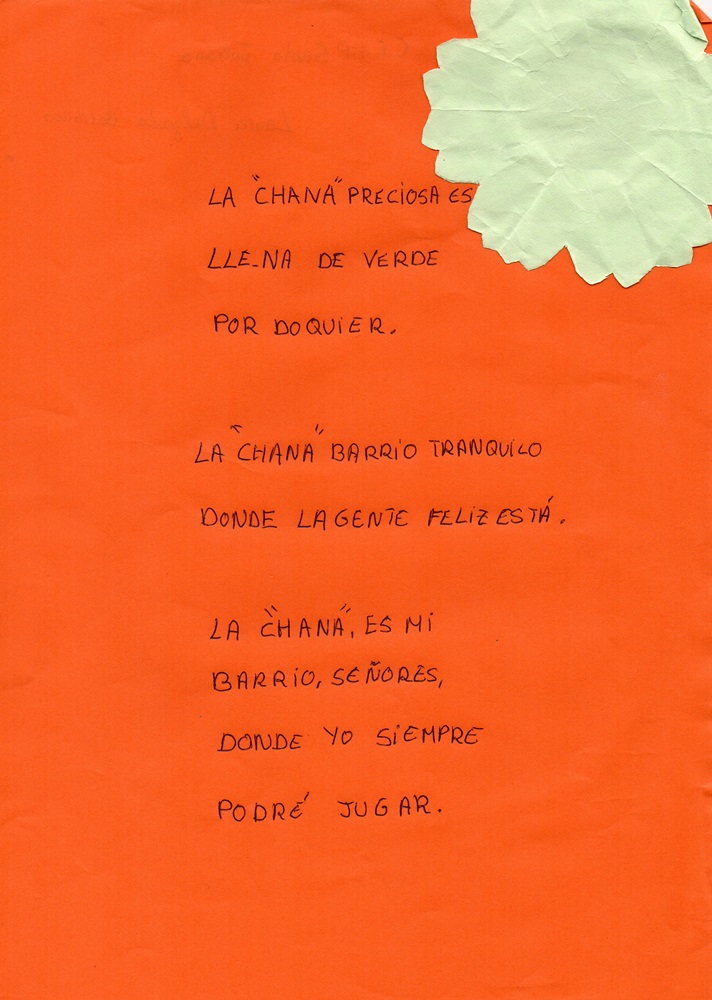 LA "CHANA" PRECIOSA ES
LLE-NA DE VERDE
POR DOQUIER.
LA "CHANA" BARRIO TRANQUILO
DONDE LA GENTE FELIZ ESTÁ.
LA "CHANA", ES MI
BARRIO, SEÑORES,
DONDE YO SIEMPRE
PODRÉ JUGAR.